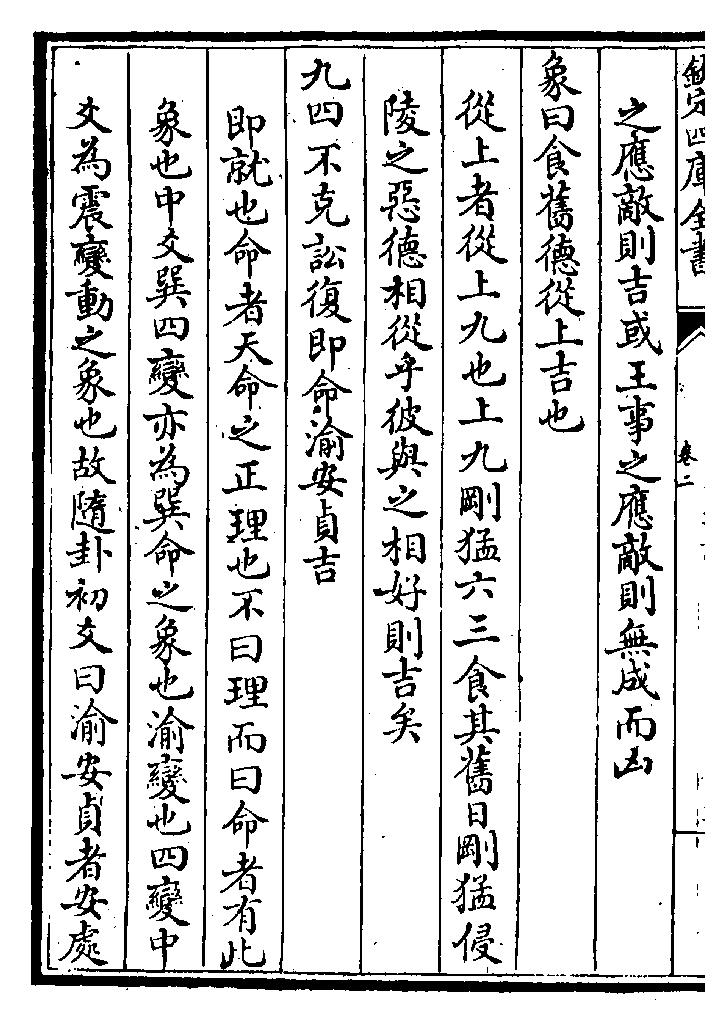 欽定四庫全書
卷二
之應敵則吉或王事之應敵則無成而凶
象曰食舊德從上吉也
從上者從上九也上九剛猛六三食其舊日剛猛侵
陵之惡德相從乎彼與之相好則吉矣
九四不克訟復即命渝安貞吉
即就也命者天命之正理也不曰理而曰命者有此
象也中爻巽四變亦為巽命之象也渝變也四變中
爻為震變動之象也故隨卦初爻曰渝安貞者安處